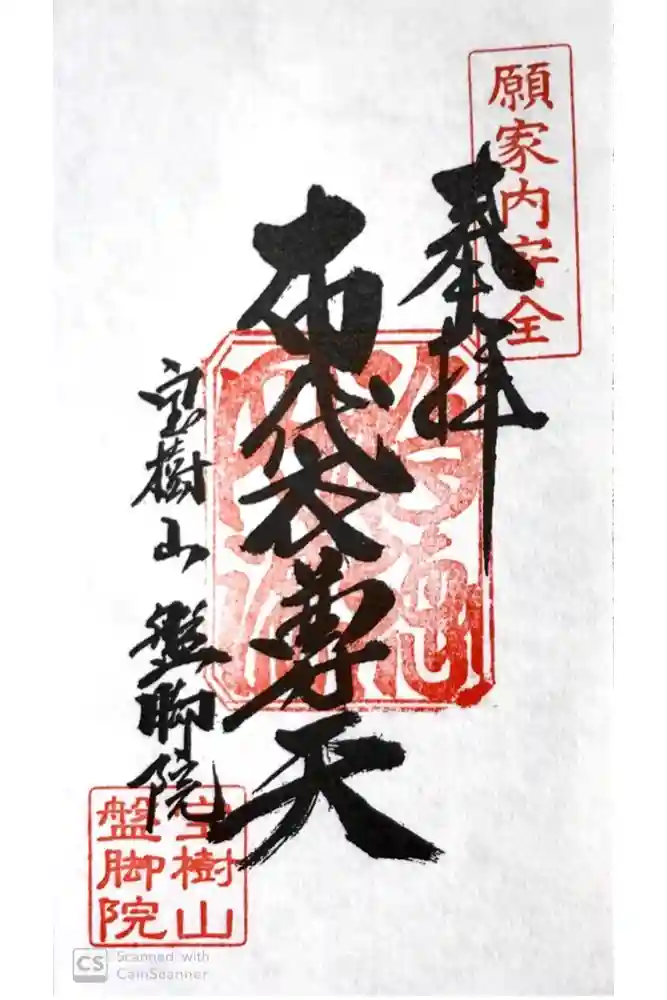 願家内安全
奉拝
布袋尊天
宝樹山 盤脚院
宝樹山
盤脚院
CS Scanned with
CamScanner